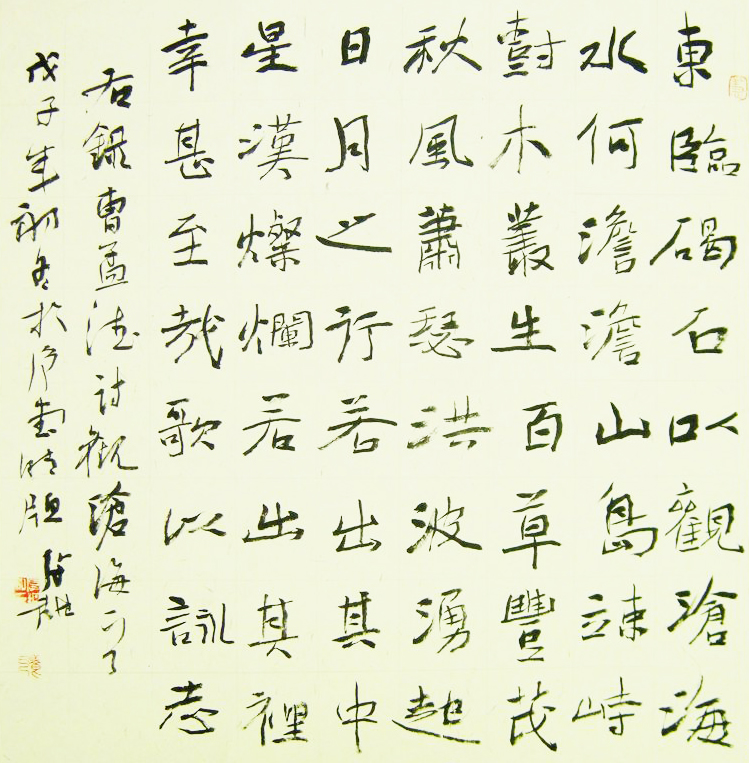 東臨碣石以觀滄海
水何澹澹山島竦峙
樹木叢生百草豐茂
秋風蕭瑟洪波湧起
日月之行若出其中
星漢燦爛若出其裡
幸甚至哉歌以詠志
右錄曹孟德詩觀滄海一了
戊子年初冬於